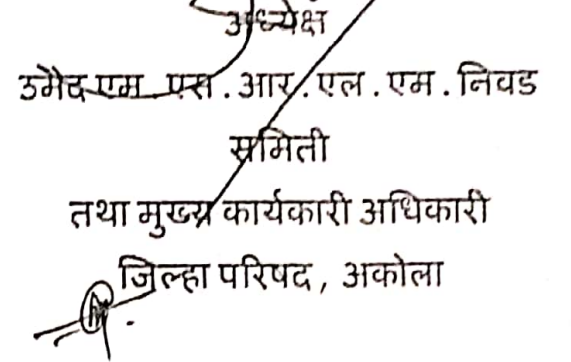 अध्यक्ष
उमेद एम एस.आर.एल.एम.निवड
समिती
तथा मुख्य कार्यकारी अधिकारी
जिल्हा परिषद, अकोला